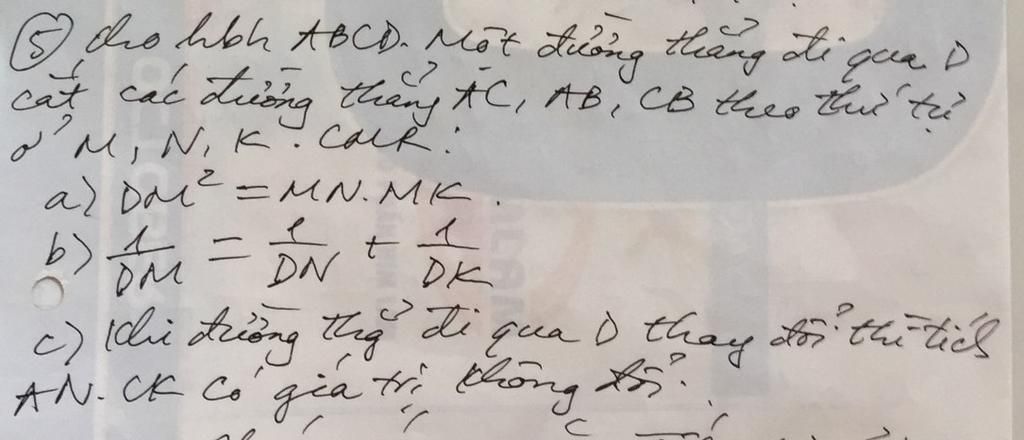 ⑤ Cho hbh ABCD. Một đường thẳng đi qua D
cắt các đường thẳng AC, AB, CB theo thứ tự
ở M, N, K. CMR:
a) DM² = MN.MK.
b) 1/DM = 1/DN + 1/DK
c) Khi đường thg̉ đi qua D thay đổi thì tích
AN.CK có giá trị không đổi.